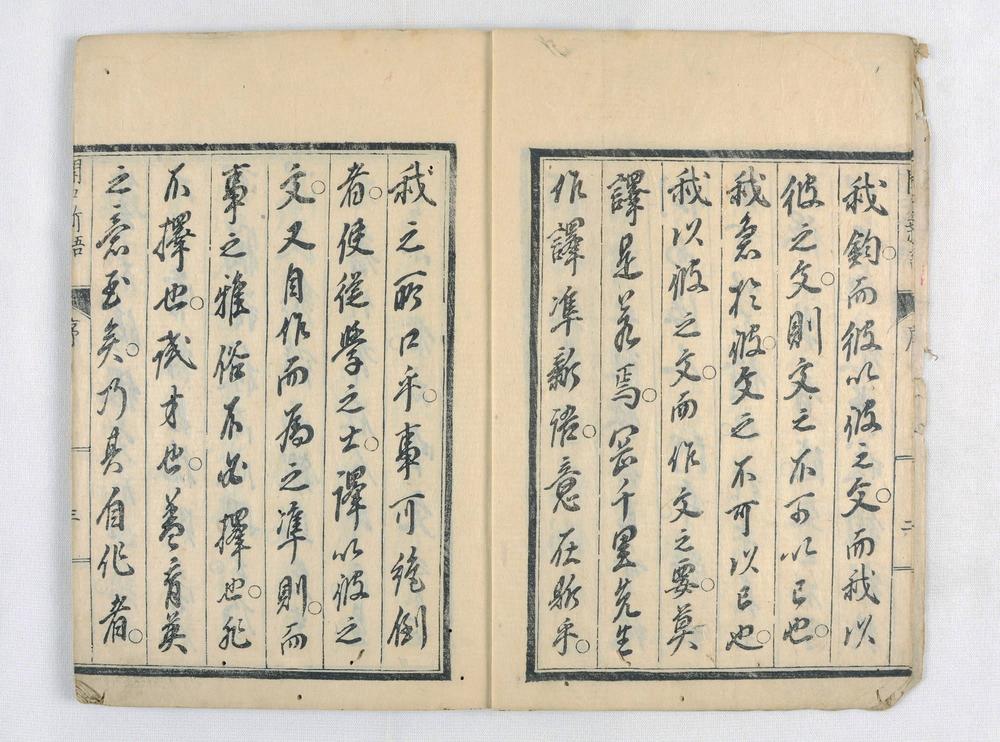 我鈞○而彼以彼之文○而我以
彼之文○則文之不可以已也○
我急於彼○文之不可以已也○
我以彼之文○而作文之要○莫
譯是若焉○岡千里先生
作譯準新語○意在斯乎○
我之所口乎○事可絶倒
者○使從學之士○譯以彼之
文○又自作而為之準則○而
事之雅俗不必擇也○非
不擇也○試才也○蓋育英
之意至矣○乃其自作者○
開口新語
序
三
序
二